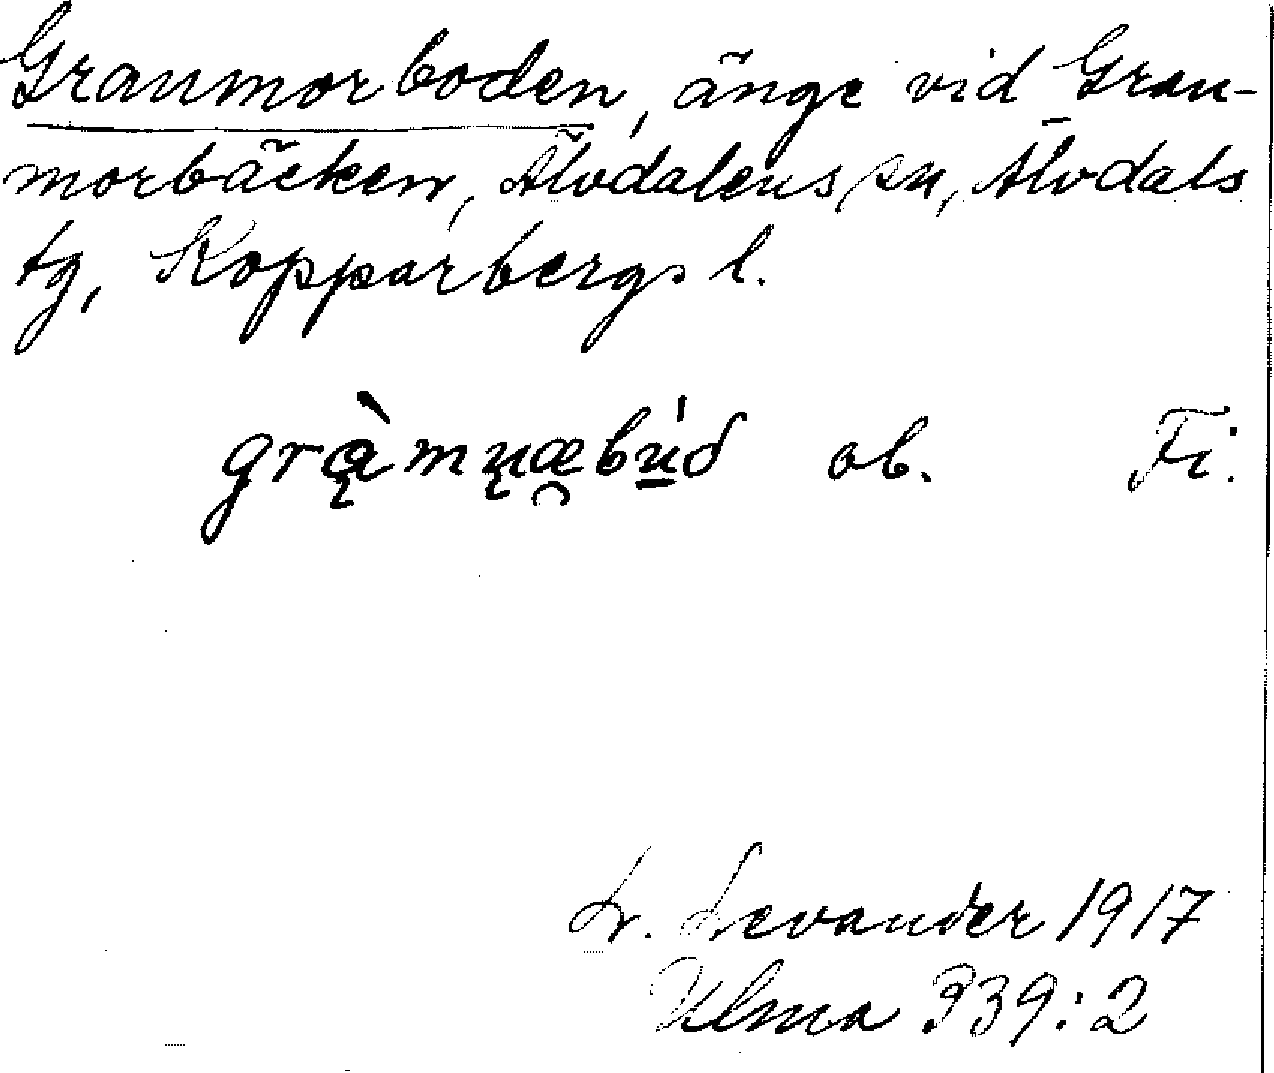 Granmorboden, änge vid Gran-
morbäcken, Älvdalens sn, Älvdals
tg, Kopparbergs l.
grą̀mųæ̯bú̱d ob. Fi.
L. Levander 1917
Ulma 339:2